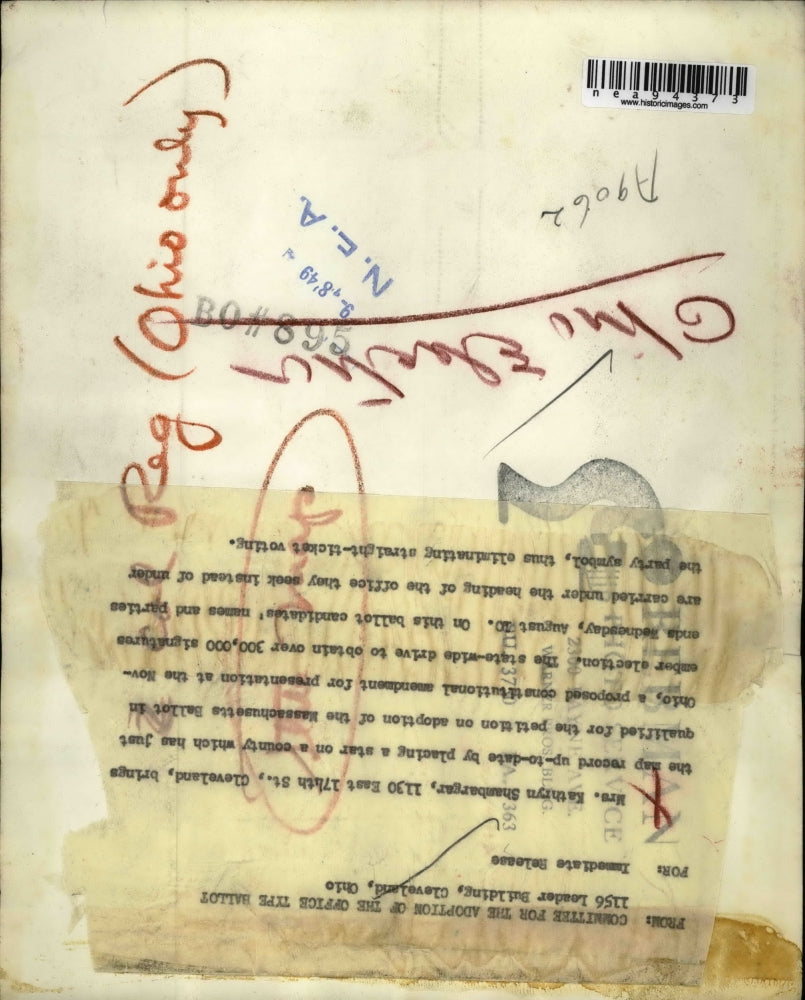 nea94373
www.historicimages.com
A9062
N.E.A.
BO#895
Reg (Ohio only)
Ohio Election
FROM: COMMITTEE FOR THE ADOPTION OF THE OFFICE TYPE BALLOT
1156 Leader Building, Cleveland, Ohio
FOR: Immediate Release
Mrs. Kathryn Shambargar, 1130 East 174th St., Cleveland, brings
the map record up-to-date by placing a star on a county which has just
qualified for the petition on adoption of the Massachusetts Ballot in
Ohio, a proposed constitutional amendment for presentation at the Nov-
ember election. The state-wide drive to obtain over 300,000 signatures
ends Wednesday, August 10. On this ballot candidates' names and parties
are carried under the heading of the office they seek instead of under
the party symbol, thus eliminating straight-ticket voting.